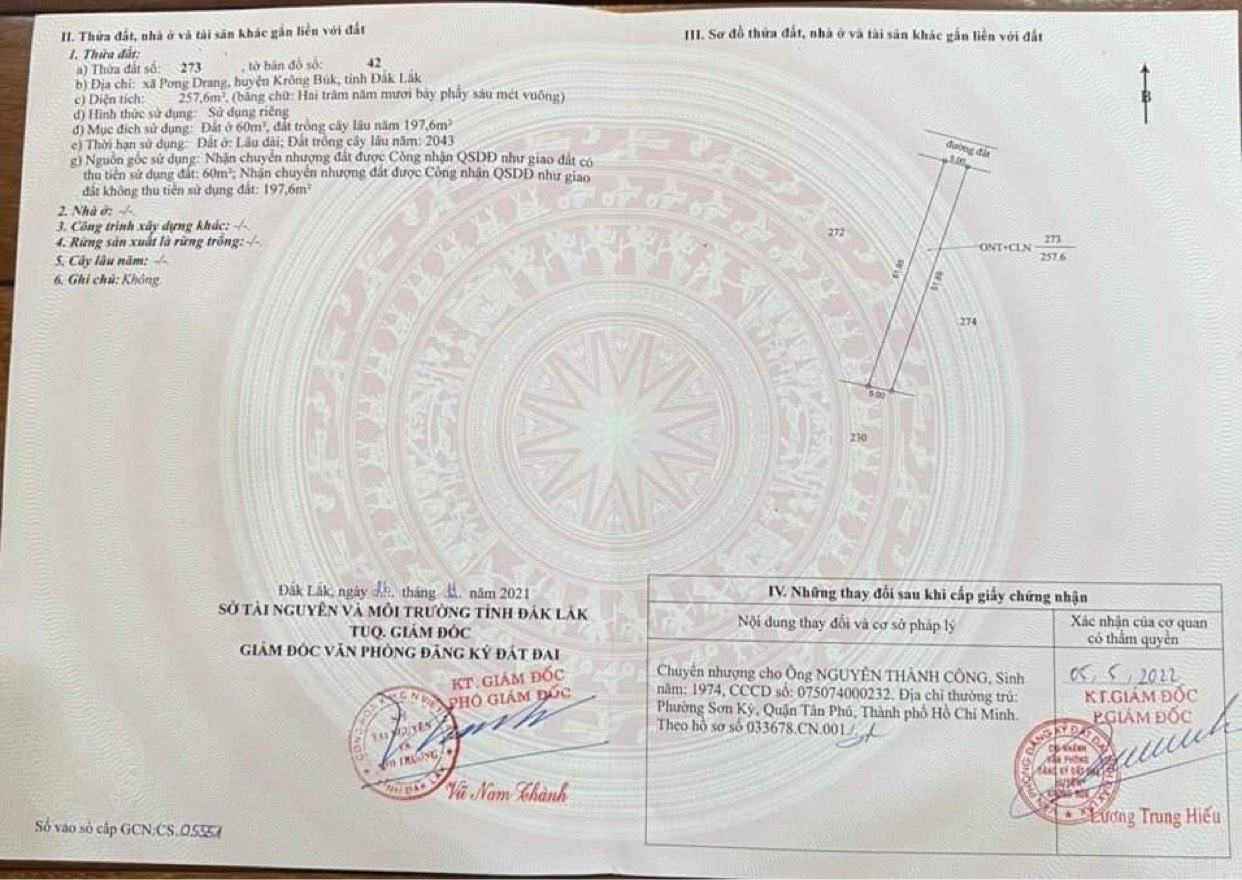 II. Thửa đất, nhà ở và tài sản khác gắn liền với đất
1. Thửa đất:
a) Thửa đất số: 273 , tờ bản đồ số: 42
b) Địa chỉ: xã Pơng Drang, huyện Krông Búk, tỉnh Đắk Lắk
c) Diện tích: 257,6m², (bằng chữ: Hai trăm năm mươi bảy phẩy sáu mét vuông)
d) Hình thức sử dụng: Sử dụng riêng
đ) Mục đích sử dụng: Đất ở 60m², đất trồng cây lâu năm 197,6m²
e) Thời hạn sử dụng: Đất ở: Lâu dài; Đất trồng cây lâu năm: 2043
g) Nguồn gốc sử dụng: Nhận chuyển nhượng đất được Công nhận QSDĐ như giao đất có
thu tiền sử dụng đất: 60m²; Nhận chuyển nhượng đất được Công nhận QSDĐ như giao
đất không thu tiền sử dụng đất: 197,6m²
2. Nhà ở: -/-.
3. Công trình xây dựng khác: -/-.
4. Rừng sản xuất là rừng trồng: -/-.
5. Cây lâu năm: -/-.
6. Ghi chú: Không.
III. Sơ đồ thửa đất, nhà ở và tài sản khác gắn liền với đất
B
đường đất
5.00
272
ONT+CLN 273
257.6
274
5.00
230
Đắk Lắk, ngày tháng 11 năm 2021
SỞ TÀI NGUYÊN VÀ MÔI TRƯỜNG TỈNH ĐẮK LẮK
TUQ. GIÁM ĐỐC
GIÁM ĐỐC VĂN PHÒNG ĐĂNG KÝ ĐẤT ĐAI
KT. GIÁM ĐỐC
PHÓ GIÁM ĐỐC
Vũ Nam Thành
Số vào sổ cấp GCN:CS.05551
IV. Những thay đổi sau khi cấp giấy chứng nhận
Nội dung thay đổi và cơ sở pháp lý
Xác nhận của cơ quan
có thẩm quyền
Chuyển nhượng cho Ông NGUYỄN THÀNH CÔNG, Sinh
năm: 1974, CCCD số: 075074000232. Địa chỉ thường trú:
Phường Sơn Kỳ, Quận Tân Phú, Thành phố Hồ Chí Minh.
Theo hồ sơ số 033678.CN.001./.
05, 5, 2022
KT.GIÁM ĐỐC
P.GIÁM ĐỐC
Lương Trung Hiếu